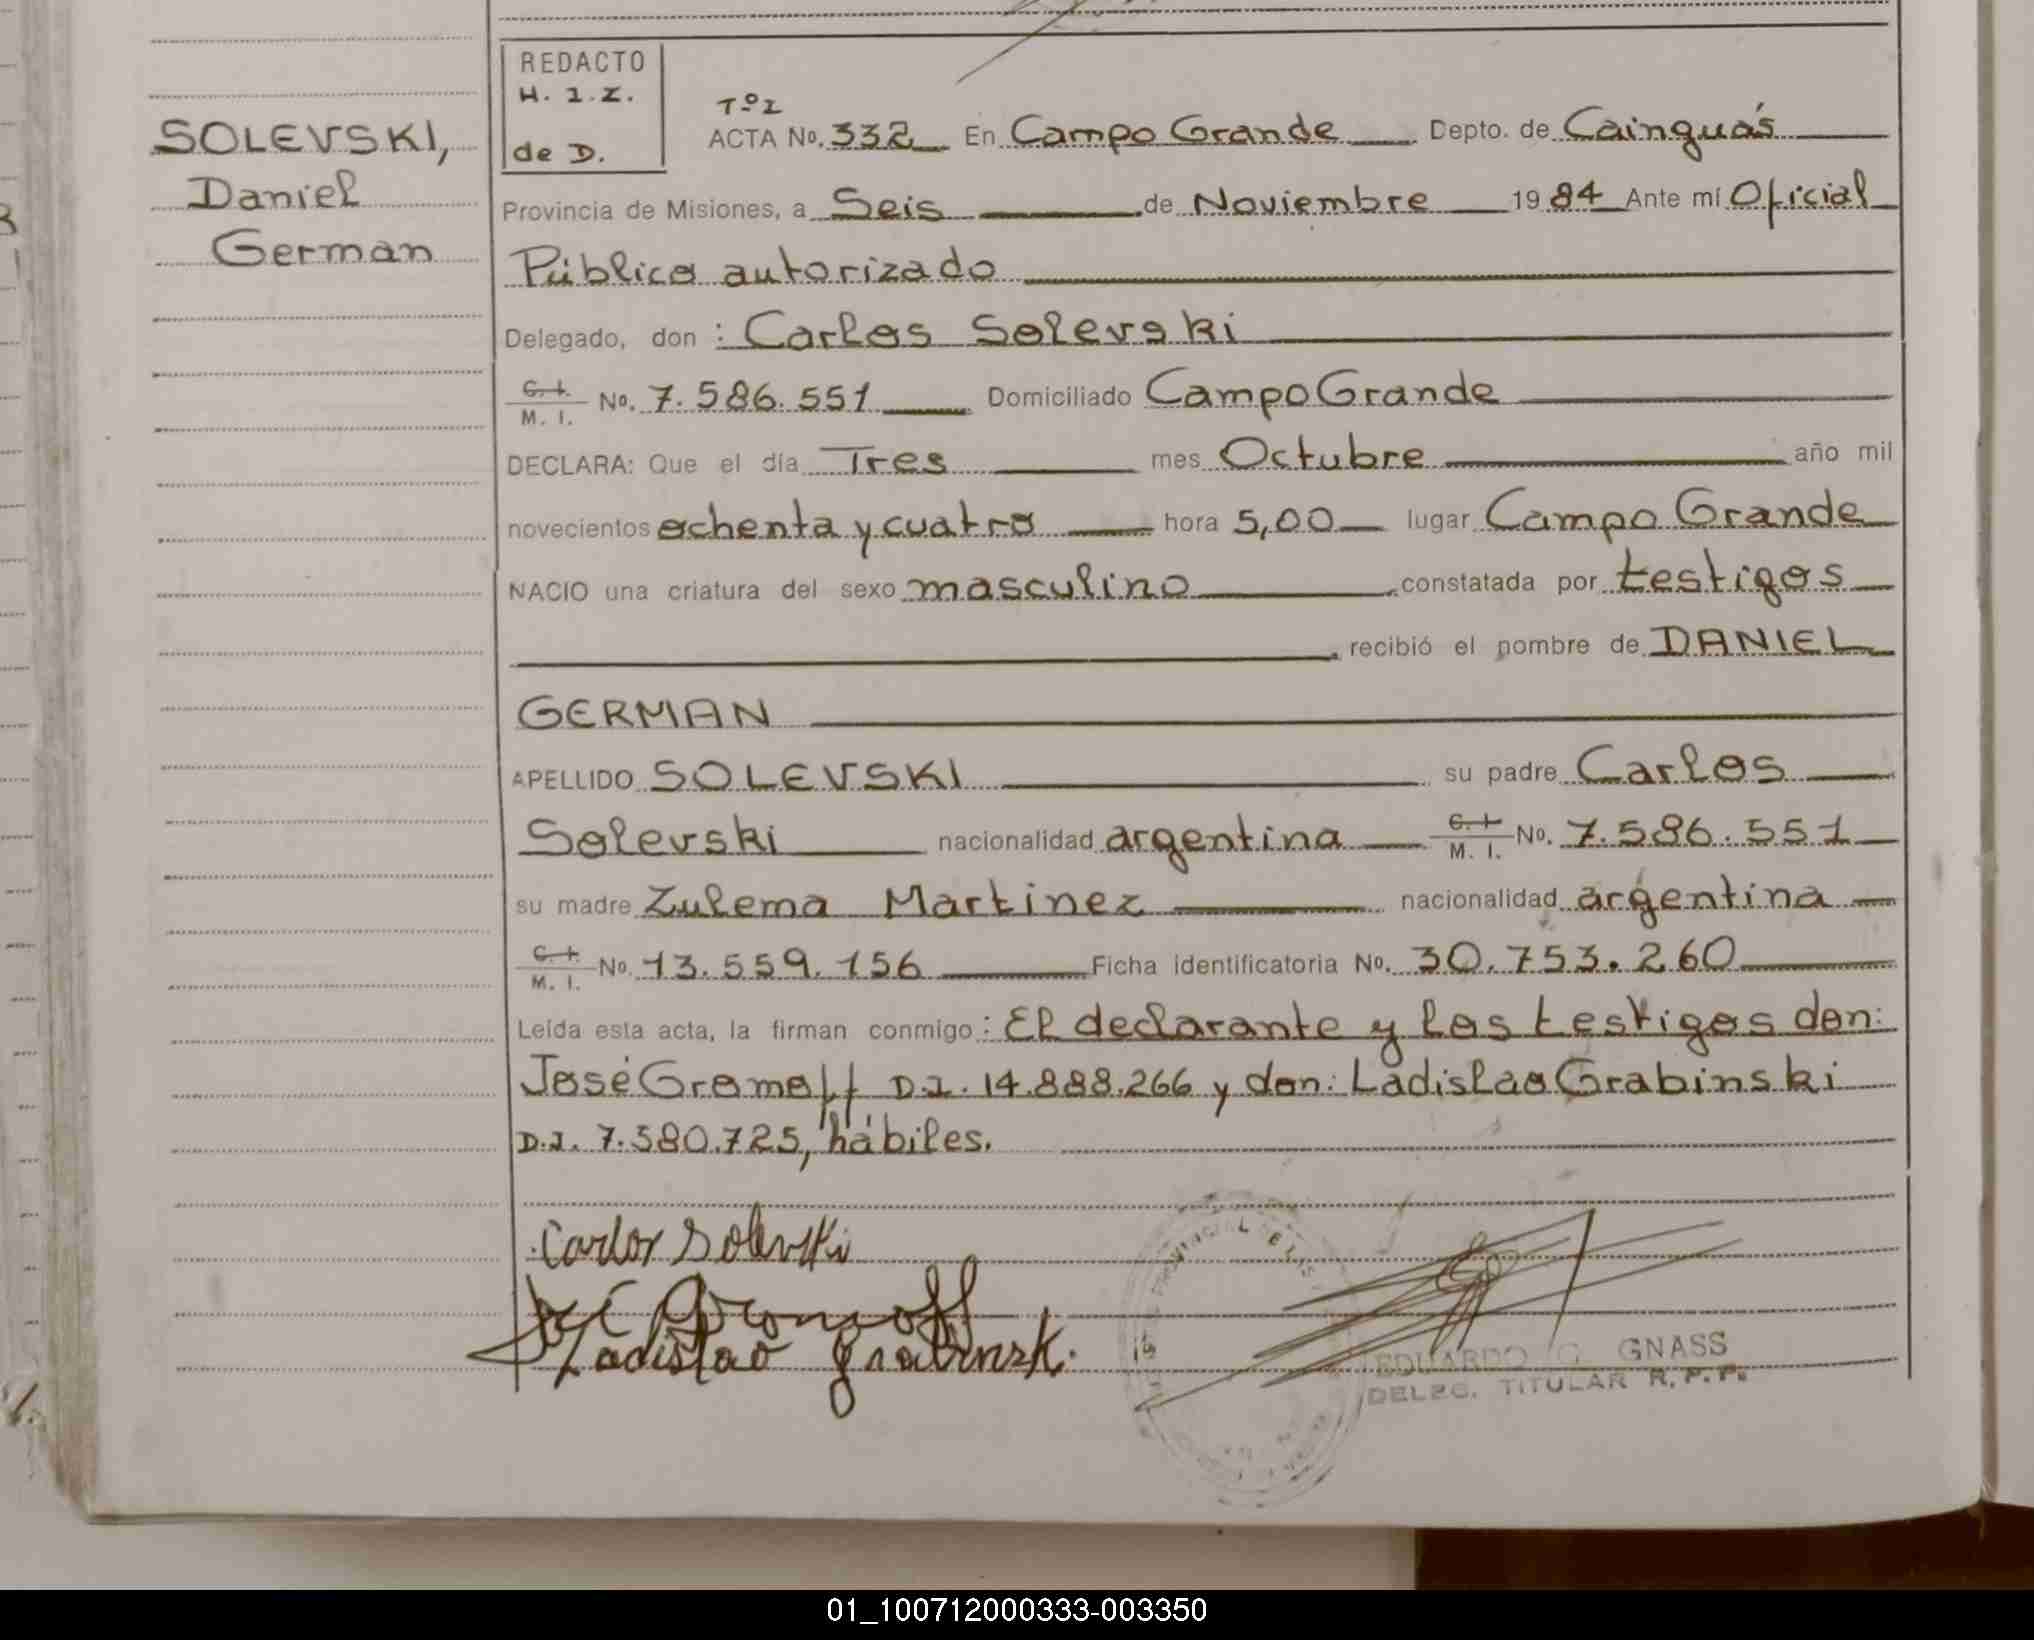 SOLEVSKI,
Daniel
German
REDACTO
H. I. Z.
de D.
Tº I
ACTA No. 332 En Campo Grande Depto. de Cainguás
Provincia de Misiones, a Seis de Noviembre 1984 Ante mí Oficial
Público autorizado
Delegado, don : Carlos Solevski
C. I. / M. I. No. 7.586.551 Domiciliado Campo Grande
DECLARA: Que el día Tres mes Octubre año mil
novecientos ochenta y cuatro hora 5,00 lugar Campo Grande
NACIO una criatura del sexo masculino constatada por testigos
recibió el nombre de DANIEL
GERMAN
APELLIDO SOLEVSKI su padre Carlos
Solevski nacionalidad argentina C. I. / M. I. No. 7.586.551
su madre Zulema Martinez nacionalidad argentina
C. I. / M. I. No. 13.559.156 Ficha identificatoria No. 30.753.260
Leída esta acta, la firman conmigo : El declarante y los testigos don:
José Gromoff D.I. 14.888.266 y don: Ladislao Grabinski
D.I. 7.580.725, hábiles.
Carlos Solevski
José Gromoff
Ladislao Grabinsk.
EDUARDO G. GNASS
DELEG. TITULAR R. P. P.
01_100712000333-003350